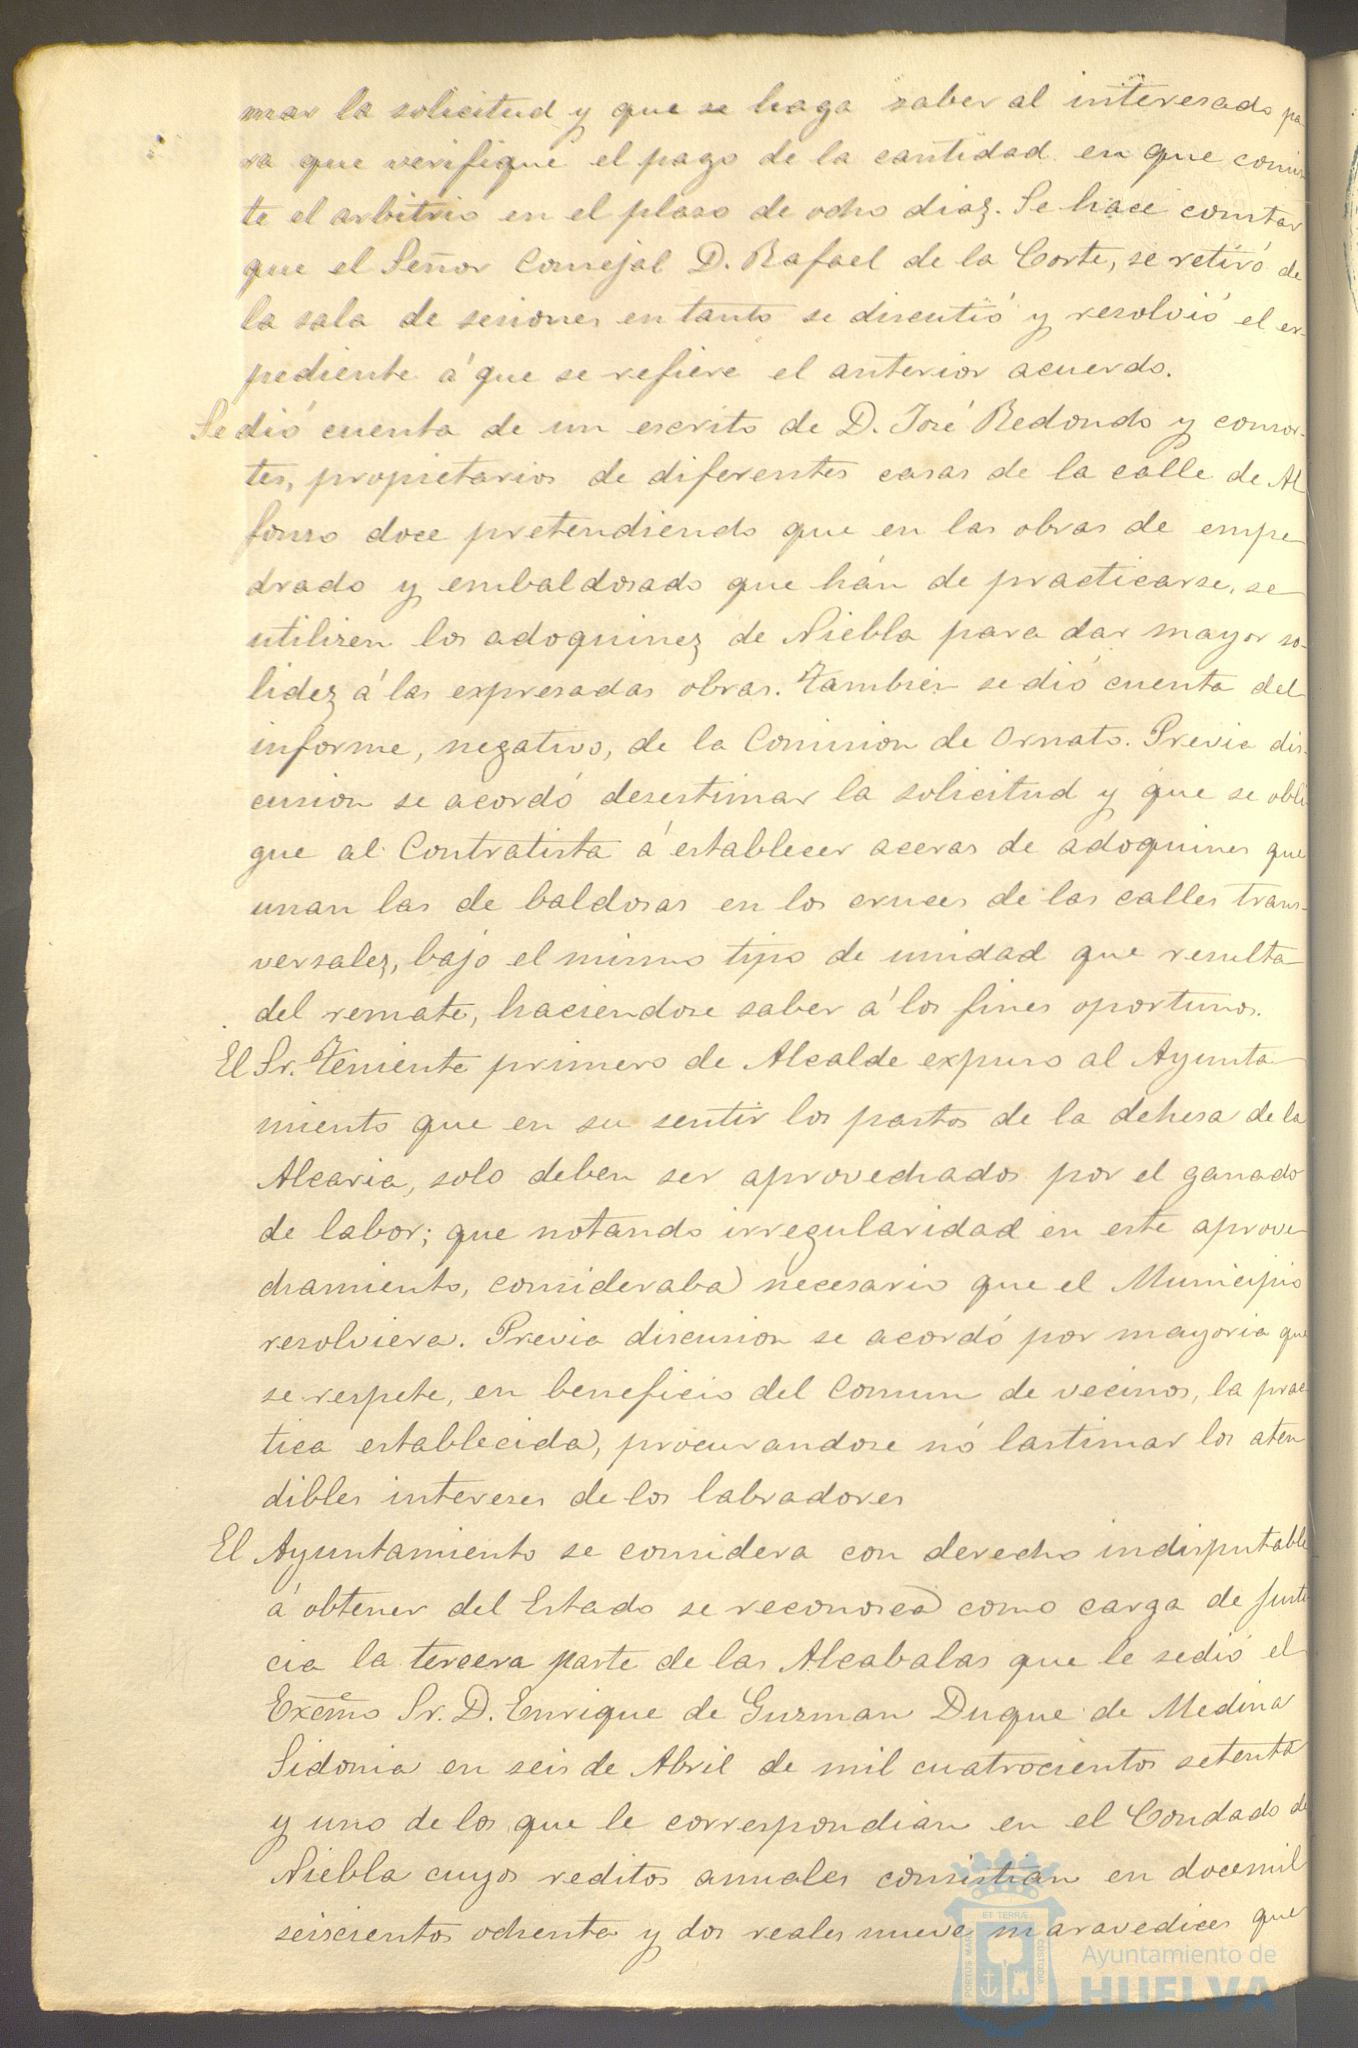 mar la solicitud y que se haga saber al interesado pa-
ra que verifique el pago de la cantidad en que consis-
te el arbitrio en el plaso de ocho diaz. Se hace constar
que el Señor Concejal D. Rafael de la Corte, se retiró de
la sala de sesiones en tanto se discutió y resolvió el ex-
pediente á que se refiere el anterior acuerdo.
Se dió cuenta de un escrito de D. José Redondo y consor-
tes, propietarios de diferentes casas de la calle de Al
fonso doce pretendiendo que en las obras de empe-
drado y embaldosado que hán de practicarse, se
utilisen los adoquinez de Niebla para dar mayor so-
lidez á las expresadas obras. Tambien se dió cuenta del
informe, negativo, de la Comision de Ornato. Previa dis-
cusion se acordó desestimar la solicitud y que se obli
gue al Contratista á establecer aceras de adoquines que
unan las de baldosas en los cruces de las calles trans-
versalez, bajo el mismo tipo de unidad que resulta
del remate, haciendose saber á los fines oportunos.
El Sr. Teniente primero de Alcalde expuso al Ayunta-
miento que en su sentir los pastos de la dehesa de la
Alcaria, solo deben ser aprovechados por el ganado
de labor; que notando irregularidad en este aprove-
chamiento, consideraba necesario que el Municipio
resolviera. Previa discusion se acordó por mayoria que
se respete, en beneficio del Comun de vecinos, la prac
tica establecida, procurandose nó lastimar los aten
dibles intereses de los labradores
El Ayuntamiento se considera con derecho indisputable
á obtener del Estado se reconosca como carga de Justi
cia la tercera parte de las Alcabalas que le sedió el
Excmo Sr. D. Enrique de Guzman Duque de Medina
Sidonia en seis de Abril de mil cuatrocientos setenta
y uno de los que le correspondian en el Condado de
Niebla cuyos reditos anuales consistian en docemil
seiscientos ochenta y dos reales nueve maravedices que
ET TERRÆ
PORTUS MARIS
CUSTODIA
Ayuntamiento de
HUELVA